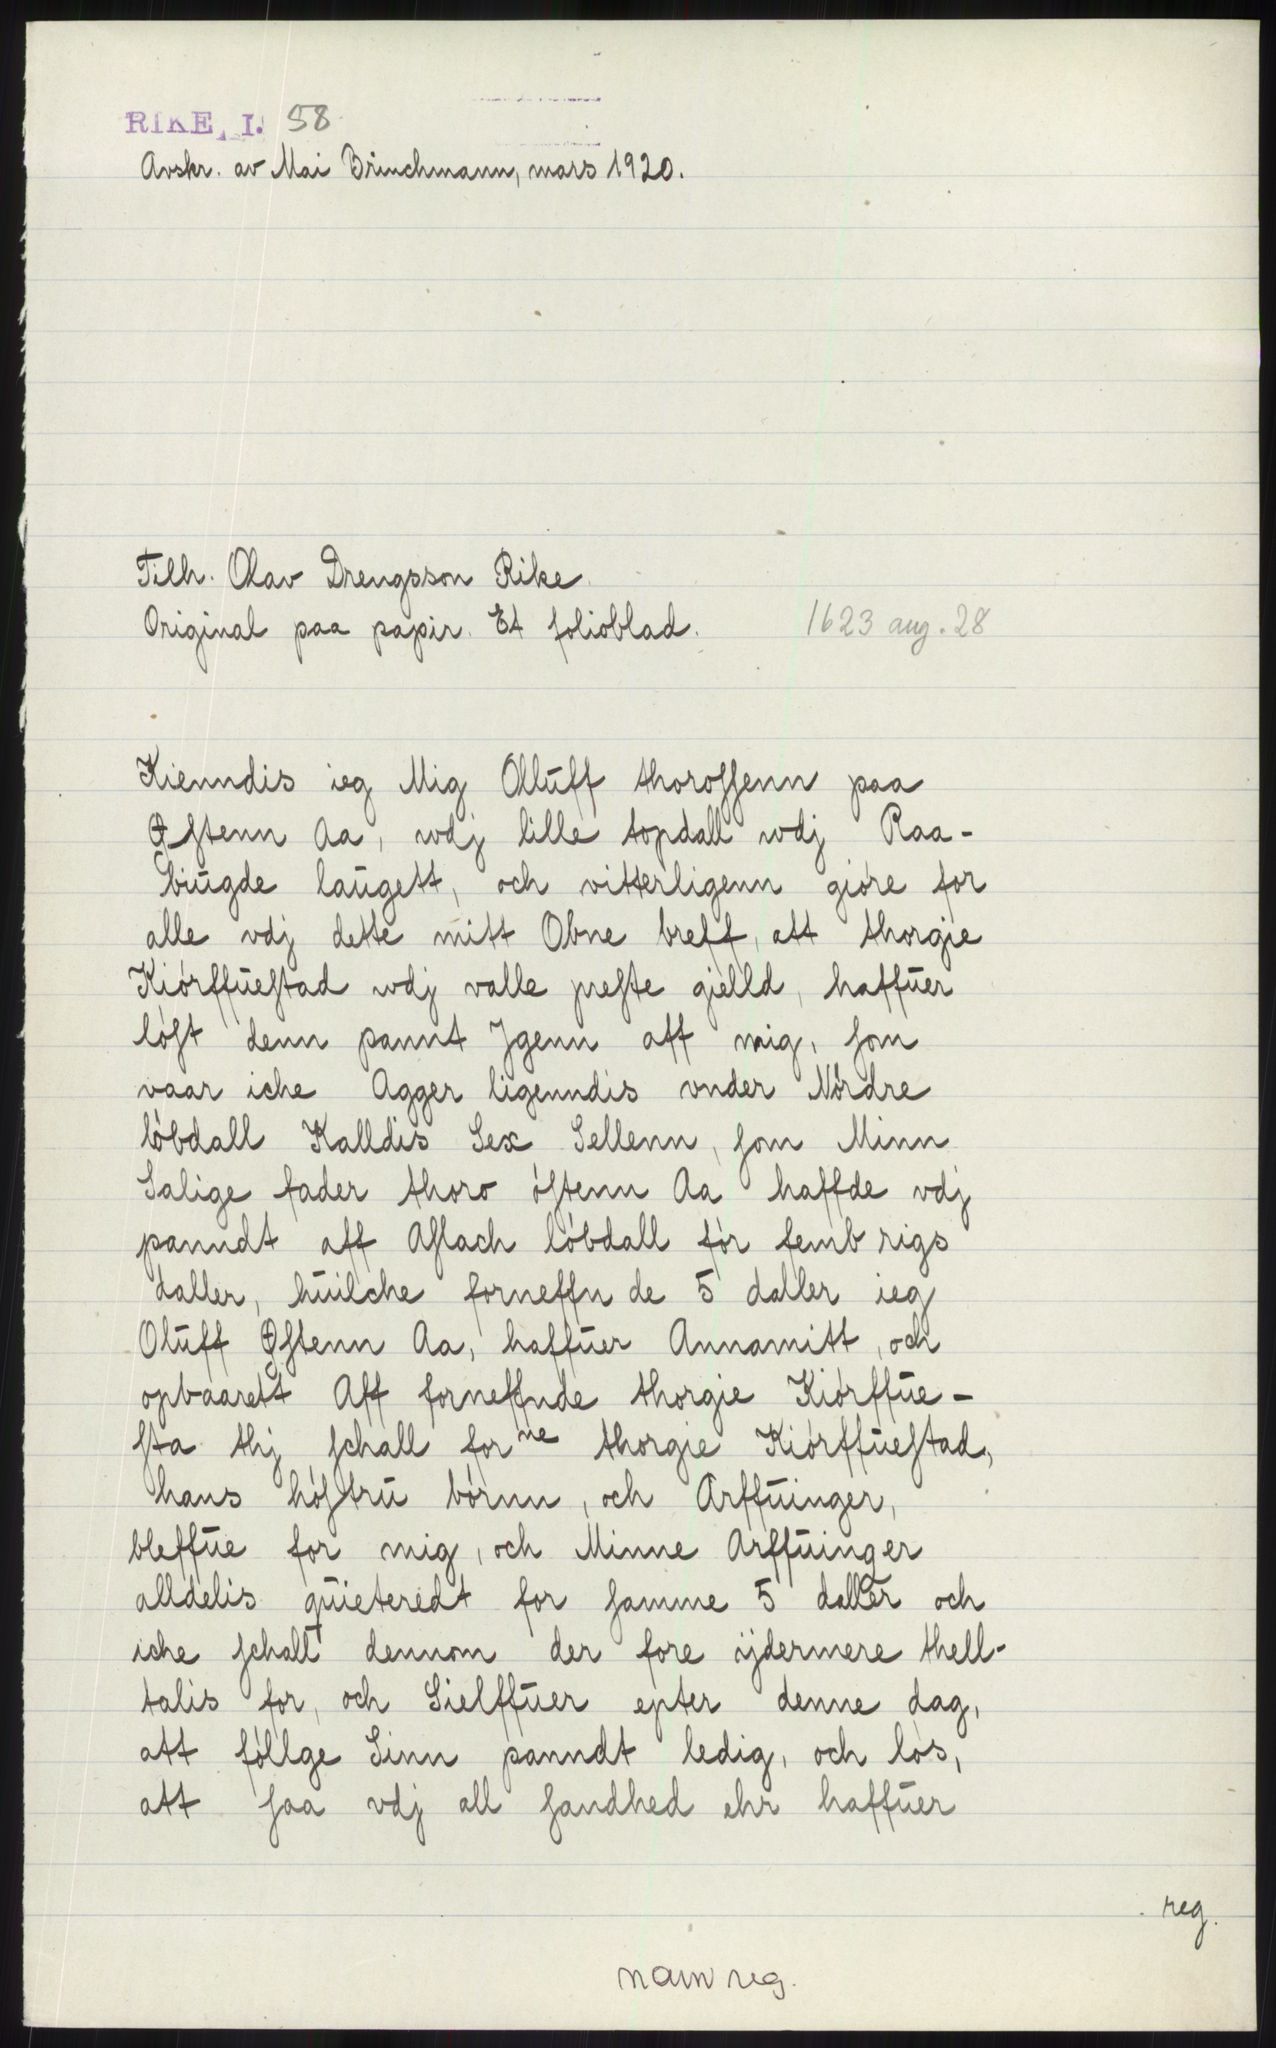 RIKE, I. 58
Avskr. av Mai Brinchmann, mars 1920.
Tilh. Olav Drengsson Rike.
Original paa papir. Et folioblad. 1623 aug. 28
Kienndis ieg Mig Olluff thorossenn paa
Østenn Aa, wdj lille topdall wdj Raa-
biugde laugett, och vitterligenn giøre for
alle vdj dette mitt Obne breff, att thorgie
Kiørffuestad wdj valle preste gielld, haffuer
løst denn pannt Jgenn aff mig, som
vaar iche Agger ligenndis vnder Nørdre
løbdall Kalldis Sex Sellenn, som Minn
Salige fader thoro østenn Aa haffde vdj
panndt aff Aslach løbdall før femb rigs
daller, huilche forneffnde 5 daller ieg
Oluff Østenn Aa, haffuer Annamitt, och
opbaarett Aff forneffnde thorgie Kiørffue-
sta thj schall forne thorgie Kiørffuestad,
hans høstru børnn, och Arffuinger,
bleffue for mig, och Minne Arffuinger
alldelis quieteredt for samme 5 daller och
iche schall dennom der fore ijdermere thell-
talis for, och Sielffuer epter denne dag,
att føllge Sinn panndt ledig, och løs,
att saa vdj all sandhed ehr haffuer
reg.
nam reg.